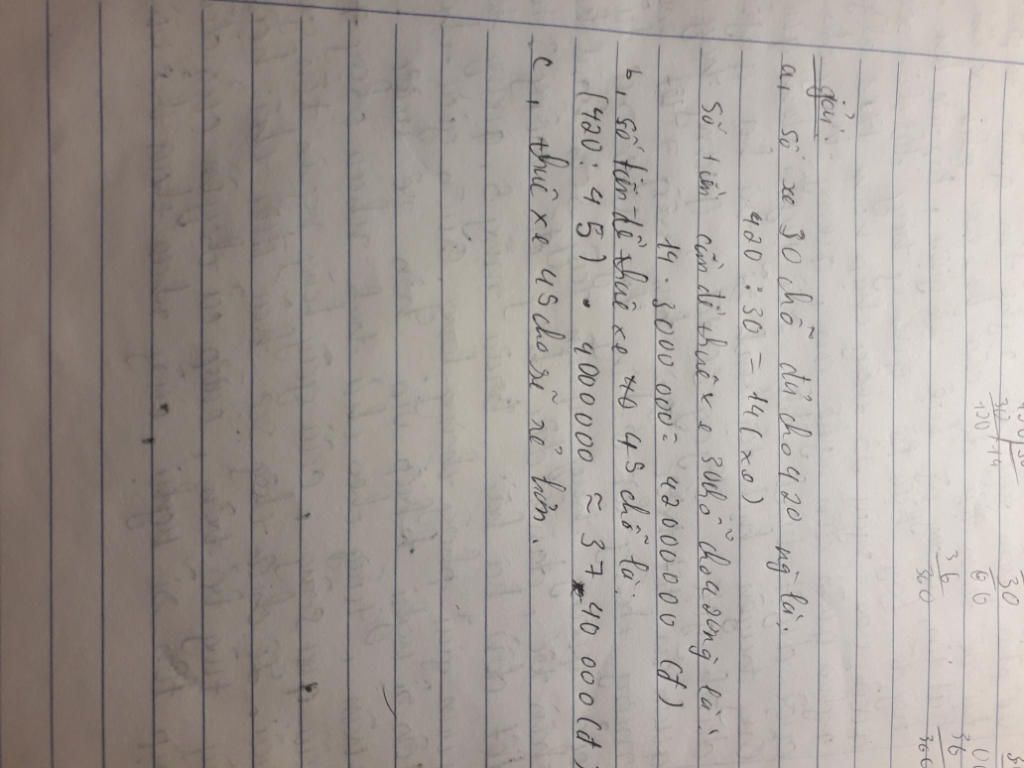 giải
a, số xe 30 chỗ đủ cho 420 ng là:
420 : 30 = 14 (xe)
số tiền cần để thuê xe 30 chỗ cho 420 ng là:
14 . 3000 000 = 42000000 (đ)
b, số tiền để thuê xe 45 chỗ là:
(420 : 45) . 4000000 ≈ 37 40 000 (đ)
c, thuê xe 45 chỗ sẽ rẻ hơn.